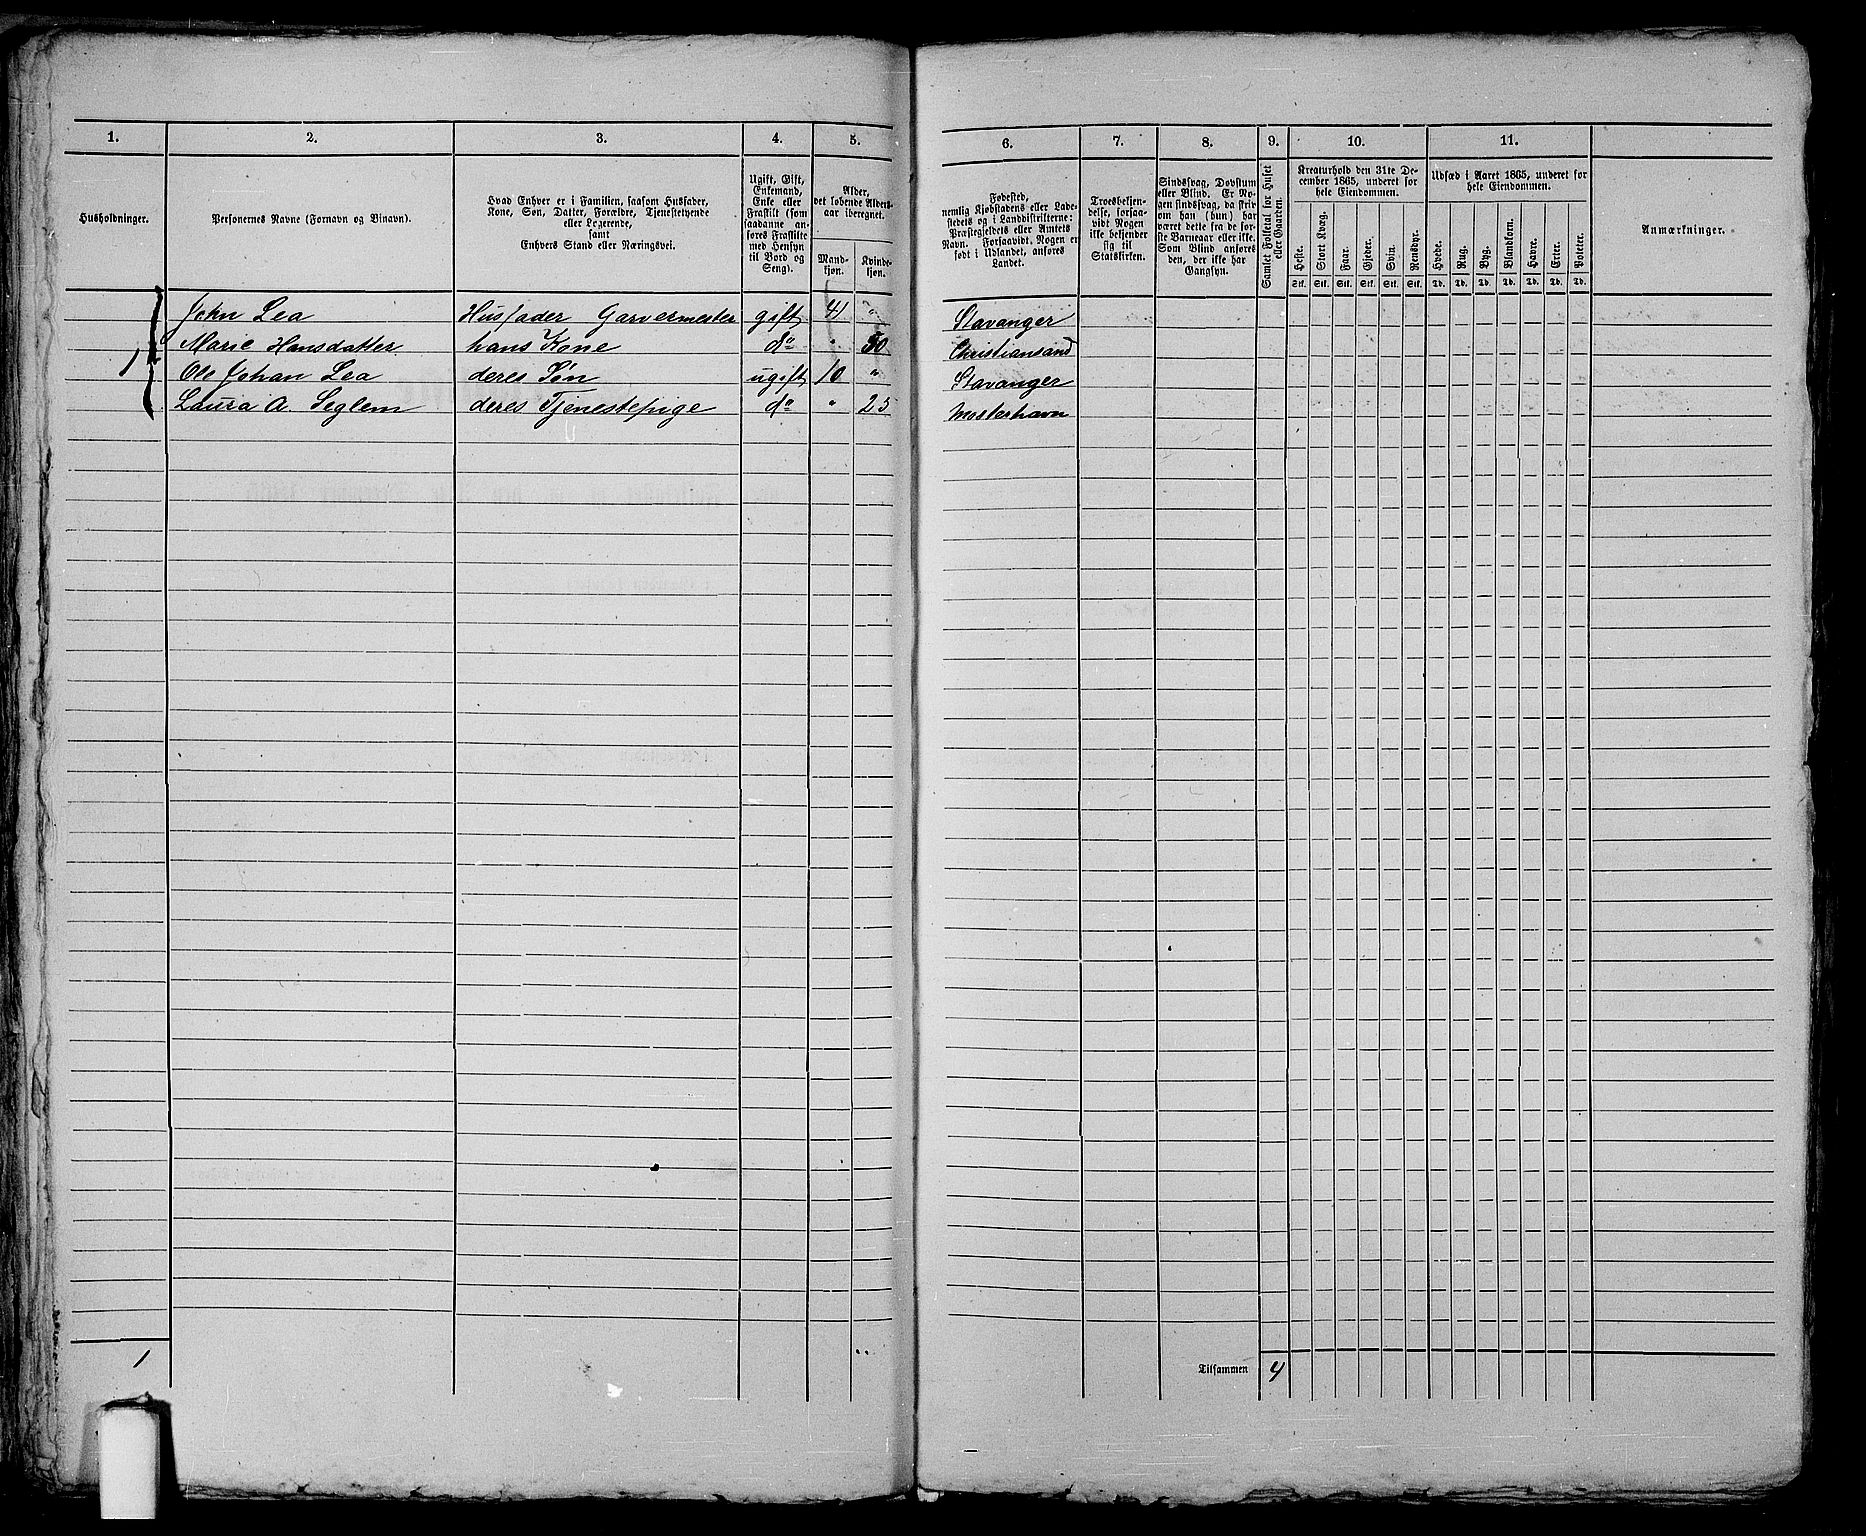 1. 2. 3. 4. 5. 6. 7. 8. 9. 10. 11.
Husholdninger.
Personernes Navne (Fornavn og Binavn).
Hvad Enhver er i Familien, saasom Husfader,
Kone, Søn, Datter, Forældre, Tjenestetyende
eller Logerende,
samt
Enhvers Stand eller Næringsvei.
Ugift, Gift,
Enkemand,
Enke eller
Fraskilt (som
saadanne an-
føres Fraskilte
med Hensyn
til Bord og
Seng).
Alder,
det løbende Alders-
aar iberegnet.
Mand-
kjøn.
Kvinde-
kjøn.
Fødested,
nemlig Kjøbstadens eller Lade-
stedets og i Landdistrikterne:
Præstegjeldets eller Amtets
Navn. Forsaavidt Nogen er
født i Udlandet, anføres
Landet.
Troesbekjen-
delse, forsaa-
vidt Nogen
ikke bekjender
sig til
Statskirken.
Sindssvag, Døvstum
eller Blind. Er No-
gen sindssvag, da skriv
om han (hun) har
været dette fra de før-
ste Barneaar eller ikke.
Som Blind anføres
den, der ikke har
Gangsyn.
Samlet Folketal for Huset
eller Gaarden.
Kreaturhold den 31te De-
cember 1865, underet for
hele Eiendommen.
Heste. Stort Kvæg. Faar. Gjeder. Svin. Rensdyr.
Stk. Stk. Stk. Stk. Stk. Stk.
Udsæd i Aaret 1865, underet for
hele Eiendommen.
Hvede. Rug. Byg. Blandkorn. Havre. Erter. Poteter.
Td. Td. Td. Td. Td. Td. Td.
Anmærkninger.
John Lea Husfader Garvermester gift 41 " Stavanger
1 Marie Hansdatter hans Kone do " 50 Christiansand
Ole Johan Lea deres Søn ugift 10 " Stavanger
Laura A Seglem deres Tjenestepige do " 25
1 Tilsammen 4